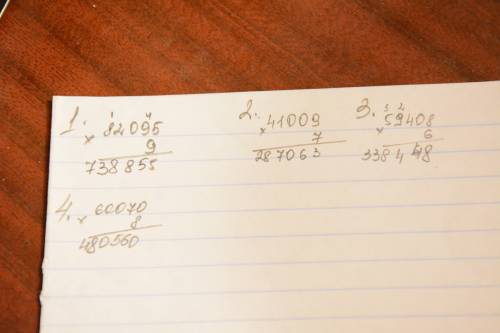 1. 82095
× 9
738855
2. 41009
× 7
287063
3. 59408
× 6
338448
4. 60070
× 8
480560